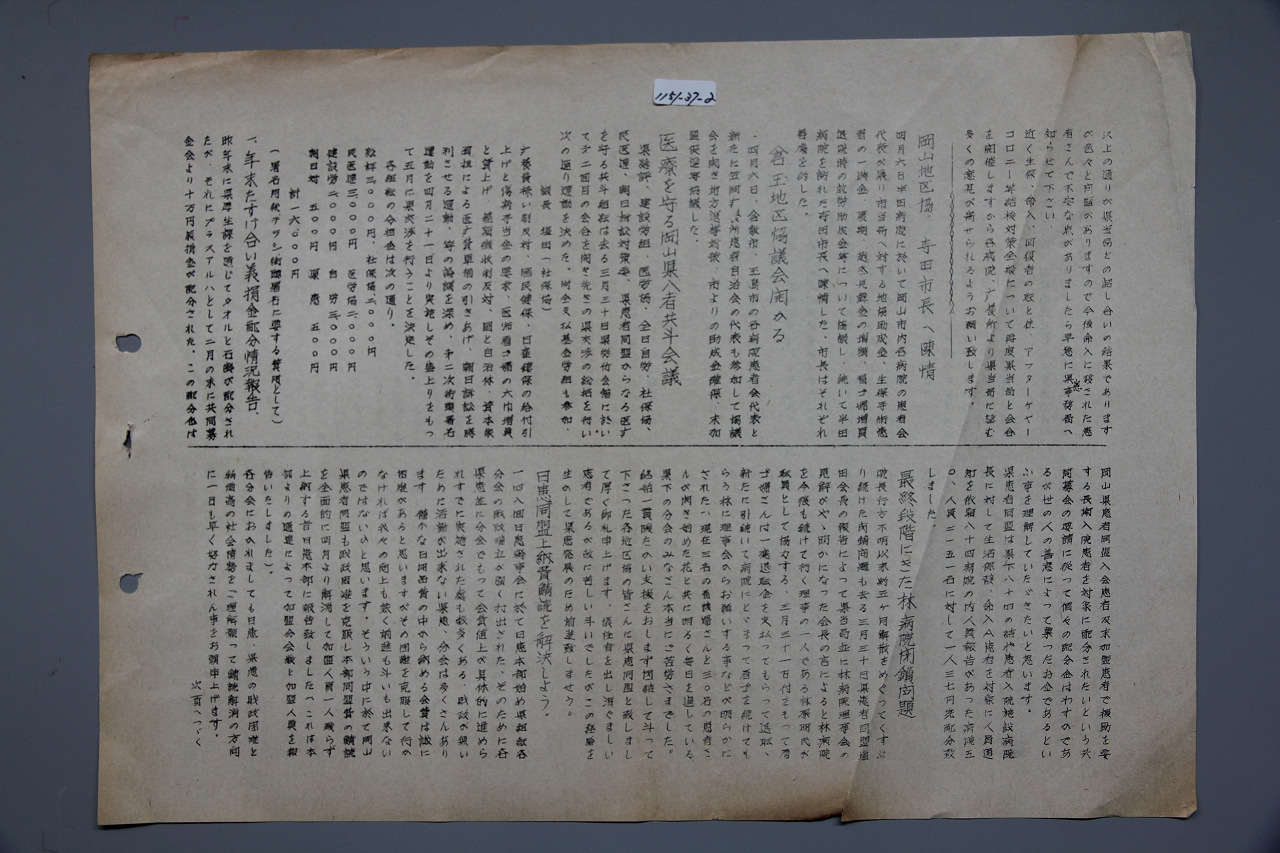 1151-37-2
以上の通りが県当局との話し合いの結果であります
が色々と問題がありますので今後命入に移された患
者さんで不安な点がありましたら早急に県事務所へ
知らせて下さい
近く生保、命入、回復者の取と住、アフターケヤー
コロニー等結核対策全般について再度県当局と会合
を開催しますから各病院、療養所より県当局に望む
多くの意見が寄せられるようお願い致します。
岡山地区協、寺田市長へ陳情
四月六日半田病院に於いて岡山市内各病院の患者会
代表が集り市当局へ対する地協助成金、生保手術患
者の一時金、夏期、越冬見舞金の増額、
退院時の鼓舞助成金等について協議し、続いて半田
病院を訪れた寺田市長へ陳情した。市長はそれぞれ
善処を約した。
倉玉地区協議会開かる
四月六日、倉敷市、玉島市の各病院患者会代表と
新たに笠岡療養所患者自治会の代表も参加して協議
会を開き地方選挙対策、市よりの助成金確保、未加
盟促進等協議した。
医療を守る岡山県八者共斗会議
県総評、建設労組、医労協、全日自労、社保協、
民医連、朝日訴訟対策委、県患者同盟からなる医療
を守る共斗組織は去る三月三十日県労協会館に於い
て第二回目の会合を開き先きの県交渉の総括を行い
次の通り運動を決めた。尚全支払基金労組も参加、
議長 堀田(社保協)
療養費値い制反対、国民健保、日雇健保の給付引
上げと傷病手当金の要求、医師看護婦の大巾増員
と賃上げ、差額徴収制反対、国と自治体、資本家
負担による医療費単価の引きあげ、朝日訴訟を勝
利させる運動、等の論議を深め、第二次街頭署名
運動を四月二十一日より実施しその盛上りをもっ
て五月に県交渉を行うことを決定した。
各組織の分担金は次の通り。
総評三〇〇〇円、社保協二〇〇〇円
民医連三〇〇〇円 医労協二〇〇〇円
建設労二〇〇〇円 自労三〇〇〇円
朝日対 五〇〇円 県患 五〇〇円
計一六〇〇〇円
(署名用紙チラシ街頭署名に要する費用として)
一、年末たすけ合い義捐金配分情況報告、
昨年末に県厚生課を通じてタオルと石鹸が配分され
たが、それにプラスアルハとして二月の末に共同募
金会より十万円義捐金が配分された。この配分金は
岡山県患者同盟入会患者及び未加盟患者で援助を要
する長期入院患者を対象に配分されたいという共
同募金会の要請に従って個々の配分金はわずかであ
るが世の人の善意によって集ったお金であるとい
ふ事を理解していたゞきたいと思います。
県患者同盟は県下八十四の結核患者入院施設病院
長に対して生活保護、命入患者を対象に人員通
知を依頼八十四病院の内人員報告があった病院三
〇、人員二一五一名に対して一人三七円宛配分致
しました。
最終段階にきた林病院閉鎖問題
院長行方不明以来約五ケ月解散をめぐってくすぶ
り続けた閉鎖問題も去る三月三十日県患者同盟塩
田会長の報告によって県当局並に林病院理事会の
見解がやゝ明かになった会長の言によると林病院
を今後も続けて行く理事の一人である林泰明氏が
職員として協力する、三月三十一日付をもって看
護婦さんは一応退職金を支払ってもらって退職、
新たに引続いて病院にとゞまって看護を続けても
らう様に理事会からお願いする事などが明らかに
された、現在三名の看護婦さんと三〇名の患者さ
んが開き始めた花と共に明るく毎日を過している
県下の分会のみなさん本当にご苦労さまでした。
終始一貫暖たかい支援をおしまず団結して斗って
下さった各地区協の皆さんに県患同盟と致しまし
て厚く御礼申上げます。犠牲者を出し淋しくまましい
患者であるが故に苦しい斗いでしたがこの経験を
生かして県患発展のため前進致しませう。
日患同盟上納費滞納を解決しよう。
一四八回日患幹事会に於て日患本部始め県組織各
分会の財政確立が強く打出された、そのために各
県患並に分会でもって会費値上が具体的に進めら
れすでに実施された処も数多くある、財政が無い
ために活動が出来ない県患、分会は多くさんあり
ます 僅かな日用品費の中から納める会費は誠に
困難があると思いますがその困難を克服して行か
なければ我々の向上も無く前進も斗いも出来ない
のではないかと思います。そういう中に於て岡山
県患者同盟も財政困難を克服し本部同盟費の滞納
を全面的に四月より解消して加盟人員一人残らず
上納する旨日患本部に報告致しました(これは本
部よりの通達によって加盟会会数と加盟人員を報
告いたしました)。
各分会におかれましても日患、県患の財政困難と
物価高の社会情勢をご理解願って滞納解消の方向
に一日も早く努力されん事をお願申上げます。
次頁へつづく